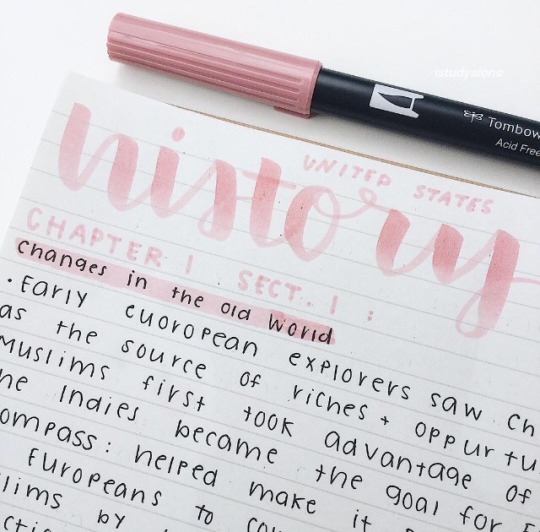 istudyalone
Tombow
Acid Free
UNITED STATES
history
CHAPTER 1 SECT. 1 :
changes in the old world
• Early euoropean explorers saw Ch
as the source of riches + oppurtu
muslims first took advantage of
he Indies became the goal for E
ompass: helped make it
Europeans to co
lims by